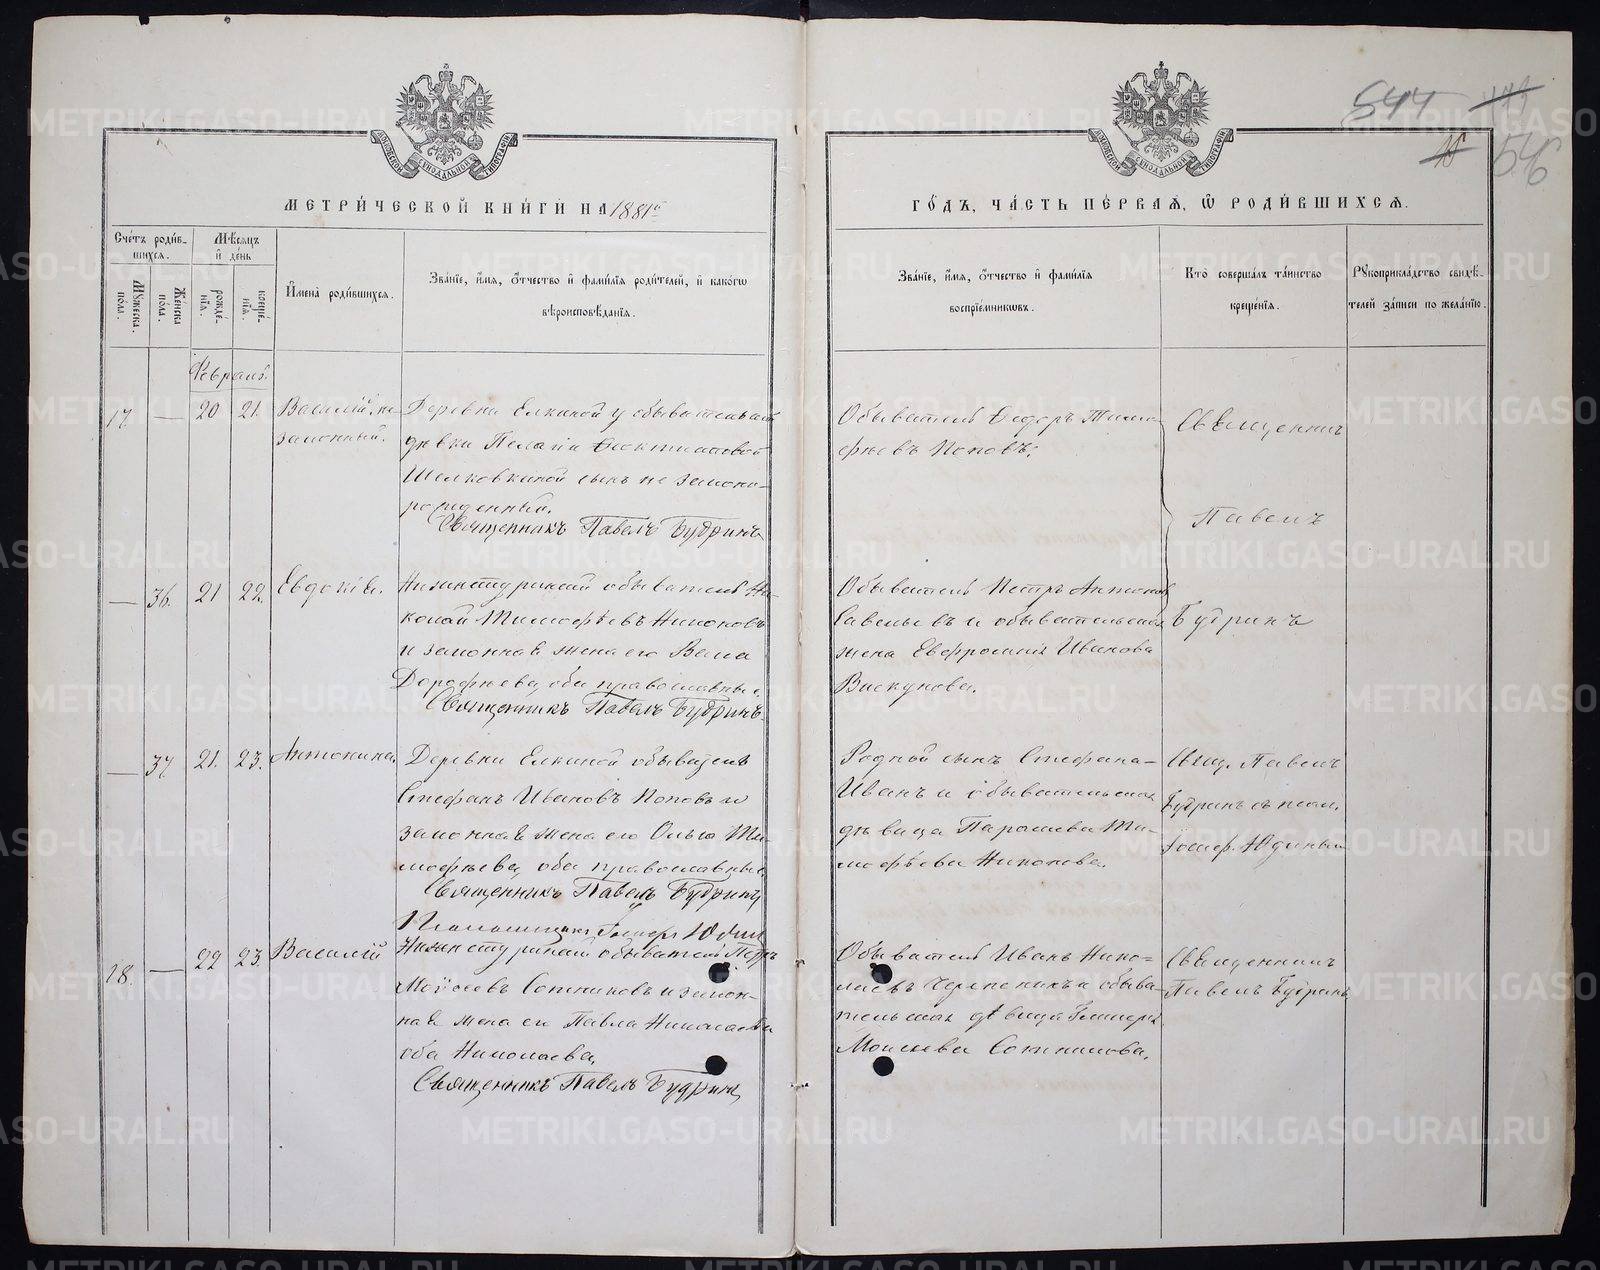 544 143
15 546
МЕТРИ́ЧЕСКОЙ КНИ́ГИ НА 1881й
ГО́ДЪ, ЧА́СТЬ ПЕ́РВАЯ, Ѡ РОДИ́ВШИХСѦ.
Сче́тъ роди́вшихсѧ.
Мꙋжеска по́ла.
Же́нска по́ла.
Мѣ́сѧцъ и҆ де́нь
рожде́нїѧ.
креще́нїѧ.
И҆мена̀ роди́вшихсѧ.
Зва́нїе, и҆́мѧ, ѻ҆́тчество и҆ фами́лїѧ роди́телей, и҆ како́гѡ
вѣроисповѣ́данїѧ.
Зва́нїе, и҆́мѧ, ѻ҆́тчество и҆ фами́лїѧ
воспрїе́мникѡвъ.
Кто̀ соверша́лъ та́инство
креще́нїѧ.
Рꙋкоприкла́дство свидѣ́-
телей за́писи по жела́нїю.
Февраль.
17 — 20 21. Василій, не-
законный.
Деревни Елкиной у обывательской
дѣвки Пелагіи
Шелковкиной сынъ не законо-
рожденный.
Священникъ Павелъ Будринъ
Обыватель Ѳедоръ Тимо-
фѣевъ Поповъ.
Священникъ
Павелъ
Будринъ
— 36. 21 22. Евдокія.
Нижнетуринскій обыватель Ни-
колай Тимофѣевъ Никоновъ
и законная жена его Васса
Дорофѣева, оба православные.
Священникъ Павелъ Будринъ
Обыватель Петръ Антонов
Савельевъ и обывательская
жена Евфросинія Иванова
Вискунова.
— 37 21. 23. Антонина.
Деревни Елкиной обыватель
Стефанъ Ивановъ Поповъ и
законная жена его Ольга Ти-
мофѣева, оба православные.
Священникъ Павелъ Будринъ
Псаломщикъ Іосифъ Юдинъ
Родной сынъ Стефана-
Иванъ и обывательская
дѣвица Парасковья Ти-
мофѣева Никонова.
Свящ. Павелъ
Будринъ съ псал.
Іосиф. Юдинымъ
18. — 22 23. Василій
Нижнетуринскій обыватель Петръ
Моисеевъ Сотниковъ и закон-
ная жена его Павла Николаева
оба Николаева,
Священникъ Павелъ Будринъ
Обыватель Иванъ Нико-
лаевъ и обыва-
тельская дѣвица
Моисеева Сотникова.
Священникъ
Павелъ Будринъ